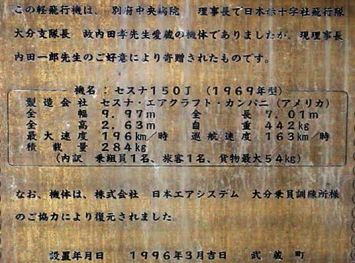 この軽飛行機は、別府中央病院 理事長で日本赤十字社飛行隊
大分支隊長 故内田孝先生愛蔵の機体でありましたが、現理事長
内田一郎先生のご好意により寄贈されたものです。
機名：セスナ150J （1969年型）
製造会社 セスナ・エアクラフト・カンパニ（アメリカ）
全幅 9.97m 全長 7.01m
全高 2.63m 自重 442kg
最大速度 196km／時 巡航速度 163km／時
積載量 284kg
（内訳 乗組員1名、旅客1名、貨物最大54kg）
なお、機体は、株式会社 日本エアシステム 大分乗員訓練所様
のご協力により復元されました。
設置年月日 1996年3月吉日 武蔵町